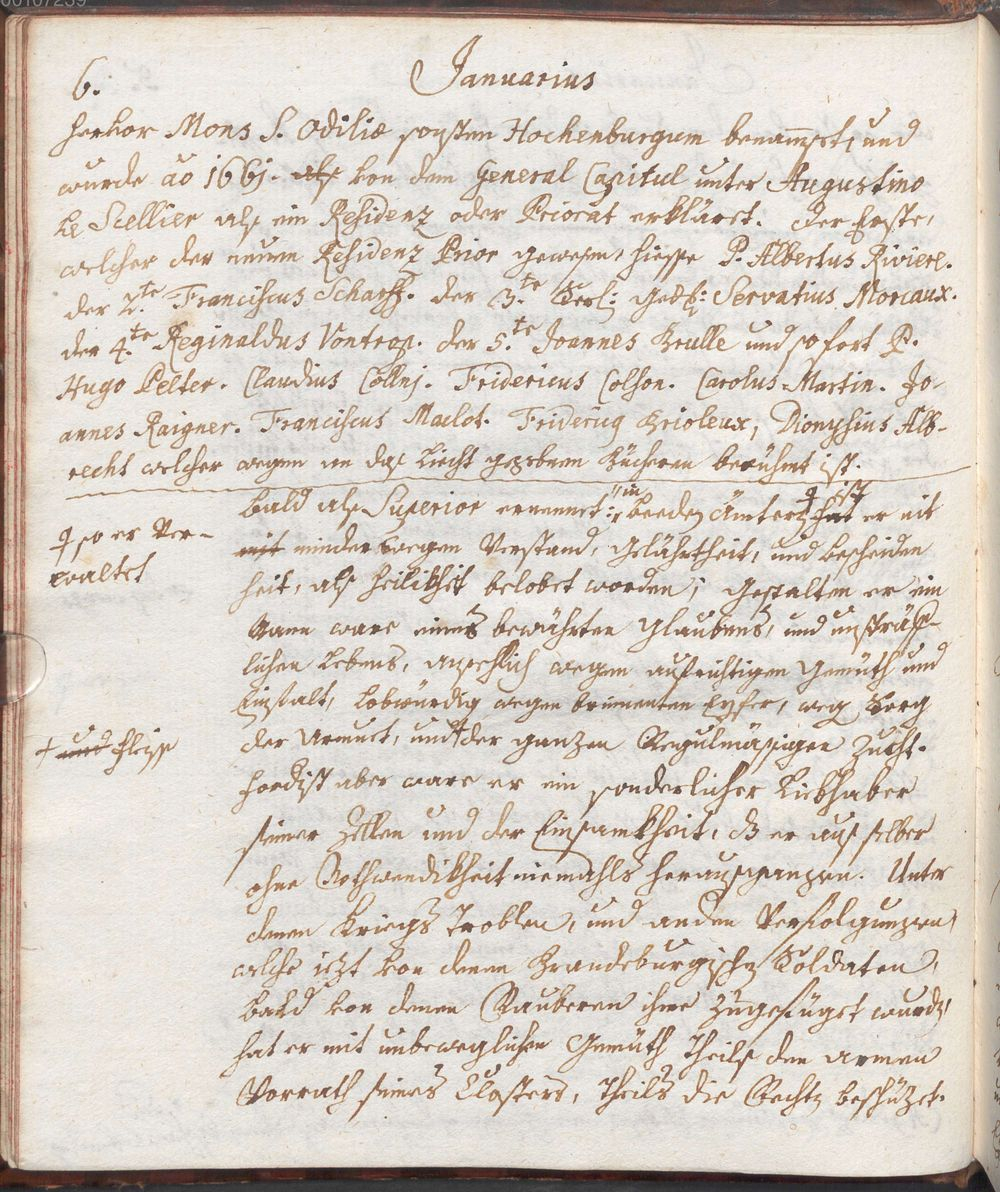 00107239
6.
Januarius
hervor Mons S. Odiliæ sonsten Hochenburgum benamset, und
wurde aõ 1661. als von dem General Capitul unter Augustino
le Scellier als ein Residenz oder Priorat erkläret. Der Erste,
welcher der neuen Residenz Prior gewesen, hiesse P. Albertus Riviere.
der 2.te Franciscus Scharff. der 3.te Servatius Moreaux.
der 4.te Reginaldus Vontrop. der 5.te Joannes Brulle und so fort P.
Hugo Pelter. Claudius Collnj. Fridericus Colson. Carolus Martin. Jo-
annes Raigner. Franciscus Maclot. Fridericus Brioleux, Dionysius Alb-
recht welcher wegen an das Liecht gegebenen Bücheren berühmt ist.
bald als Superior ernennet: in beeden Ämtern ♀ hat ist er nit
♀ so er Ver-
waltet
mit minder wegen Verstand, Gelährtheit, und bescheiden
heit, als Heilikheit belobet worden; Gestalten er ein
Mann ware eines bewährten Glaubens, und unsträff-
lichen Lebens, ansehlich wegen aufrichtigen Gemüth und
Einfalt, lobwürdig wegen brinnenten Eyfer, weg Sorg
der Armuet, und + der ganzen Regulmäsigen Zucht.
+ und Fleiss
Fordist aber ware er ein sonderlicher Liebhaber
seiner Zellen und der Einsamkheit, dß er aus selber
ohne Nothwendikheit niemahls herausgangen. Unter
denen Kriegs Troblen, und anden Verfolgungen,
welche iezt von denen Brandeburgischen Soldaten,
bald von denen Rauberen ihme zugefüget wurden,
hat er mit unbeweglichen Gemüth theils den armen
Vorrath seines Closters, theils die Rechte beschüzet.